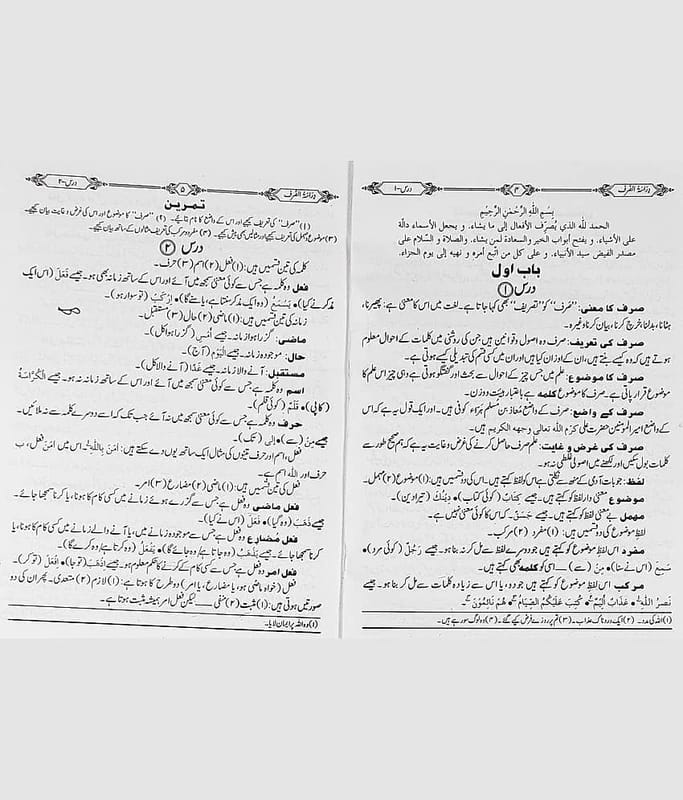 دراسۃ الصرف ۳ درس-۱
بِسْمِ اللّٰهِ الرَّحْمٰنِ الرَّحِيْمِ
الحمد لله الذي يُصَرِّف الأفعال إلى ما يشاء، و يجعل الأسماء دالّة
على الأشياء، و يفتح أبواب الخير والسعادة لمن يشاء. والصلاة و السلام على
مصدر الفيض سيد الأنبياء، و على كل من اتبع أمره و نهيه إلى يوم الجزاء.
باب اول
درس (۱)
صرف کا معنی: ”صَرْف“ کو ”تصریف“ بھی کہا جاتا ہے۔ لغت میں اس کا معنی ہے: پھیرنا،
ہٹانا، بدلنا، خرچ کرنا، بیان کرنا وغیرہ۔
صرف کی تعریف: صرف وہ اصول و قوانین ہیں جن کی روشنی میں کلمات کے احوال معلوم
ہوتے ہیں کہ وہ کیسے بنتے ہیں، ان کے اوزان کیا ہیں اور ان میں کسی قسم کی تبدیلی کیسے ہوتی ہے۔
صرف کا موضوع: علم میں جس چیز کے احوال سے بحث اور گفتگو ہوتی ہے وہی چیز اس علم کا
موضوع قرار پاتی ہے۔ صرف کا موضوع کلمہ ہے باعتبار ہیئت و وزن۔
صرف کے واضع: صرف کے واضع مُعاذ بن مُسلم ہَرّاء کوفی ہیں۔ اور ایک قول یہ ہے کہ اس
کے واضع امیر المومنین حضرت علی کرّم اللہ تعالی وجھہ الکریم ہیں۔
صرف کی غرض و غایت: علم صرف حاصل کرنے کی غرض و غایت یہ ہے کہ ہم صحیح طور سے
کلمات بول سکیں اور لکھنے میں اصولی غلطی نہ ہو۔
لفظ: جو بات آدمی کے منھ سے نکلتی ہے اس کو لفظ کہتے ہیں۔ اس کی دو قسمیں ہیں: (۱) موضوع (۲) مہمل۔
موضوع معنی دار لفظ کو کہتے ہیں۔ جیسے كِتَابٌ (کوئی کتاب) • دِيْنُكَ (تیرا دین)۔
مہمل بے معنی لفظ کو کہتے ہیں۔ جیسے جَسَقٌ کہ اس کا کوئی معنی نہیں ہے۔
لفظِ موضوع کی دو قسمیں ہیں: (۱) مفرد (۲) مرکب۔
مفرد اس لفظِ موضوع کو کہتے ہیں جو دوسرے لفظ سے مل کر نہ بنا ہو۔ جیسے رَجُلٌ (کوئی مرد) •
سَمِعَ (اس نے سنا) • مِنْ (سے)۔ اسی کو کلمہ بھی کہتے ہیں۔
مرکب اس لفظِ موضوع کو کہتے ہیں جو دو، یا اس سے زیادہ کلمات سے مل کر بنا ہو۔ جیسے
نَصْرُ اللّٰهِ • عَذَابٌ أَلِيْمٌ • كُتِبَ عَلَيْكُمُ الصِّيَامُ • هُمْ نَائِمُوْنَ
(۱) اللہ کی مدد۔ (۲) ایک دردناک عذاب۔ (۳) تم پر روزے فرض کیے گئے۔ (۴) وہ لوگ سو رہے ہیں۔
دراسۃ الصرف ۵ درس-۲
تمرین
(۱) ”صرف“ کی تعریف کیجیے اور اس کے واضع کا نام بتائیے۔ (۲) ”صرف“ کا موضوع اور اس کی غرض و غایت بیان کیجیے۔
(۳) موضوع و مہمل کی تعریف کیجیے اور مثالیں بھی پیش کیجیے۔ (۴) مفرد و مرکب کی تعریف مثالوں کے ساتھ بیان کیجیے۔
درس (۲)
کلمہ کی تین قسمیں ہیں: (۱) فعل (۲) اسم (۳) حرف۔
فعل وہ کلمہ ہے جس سے کوئی معنی سمجھ میں آئے اور اس کے ساتھ زمانہ بھی ہو۔ جیسے فَعَلَ (اس ایک
مذکر نے کیا) • يَسْمَعُ (وہ ایک مذکر سنتا ہے، یا سنے گا) • اِرْكَبْ (تو سوار ہو)۔
زمانہ کی تین قسمیں ہیں: (۱) ماضی (۲) حال (۳) مستقبل۔
ماضی: گزرا ہوا زمانہ۔ جیسے أَمْسِ (گزرا ہوا کل)۔
حال: موجودہ زمانہ۔ جیسے اَلْيَوْمَ (آج)۔
مستقبل: آنے والا زمانہ۔ جیسے غَدًا (آنے والا کل)۔
اسم وہ کلمہ ہے جس سے کوئی معنی سمجھ میں آئے اور اس کے ساتھ زمانہ نہ ہو۔ جیسے اَلْكُرَّاسَةُ
(کاپی) • قَلَمٌ (کوئی قلم)۔
حرف وہ کلمہ ہے جس سے کوئی معنی سمجھ میں نہ آئے جب تک کہ اسے دوسرے کلمہ سے نہ ملائیں۔
جیسے مِنْ (سے) • إِلٰى (تک)۔
فعل، اسم اور حرف تینوں کی مثال ایک ساتھ یوں دے سکتے ہیں: آمَنَ بِاللّٰهِ اس میں آمَنَ فعل، ب
حرف اور اللہ اسم ہے۔
فعل کی تین قسمیں ہیں: (۱) ماضی (۲) مضارع (۳) امر۔
فعل ماضی وہ فعل ہے جس سے گزرے ہوئے زمانے میں کسی کام کا ہونا، یا کرنا سمجھا جائے۔
جیسے ذَهَبَ (وہ گیا) • فَعَلَ (اس نے کیا)۔
فعل مُضارع وہ فعل ہے جس سے موجودہ زمانہ میں، یا آنے والے زمانہ میں کسی کام کا ہونا، یا
کرنا سمجھا جائے۔ جیسے يَذْهَبُ (وہ جاتا ہے/وہ جائے گا) • يَفْعَلُ (وہ کرتا ہے/وہ کرے گا)۔
فعل امر وہ فعل ہے جس سے کسی کام کے کرنے کا حکم معلوم ہو۔ جیسے اِذْهَبْ (تو جا) • اِفْعَلْ (تو کر)۔
فعل (خواہ ماضی ہو، یا مضارع، یا امر) دو طرح کا ہوتا ہے (۱) لازم (۲) متعدی۔ پھر ان کی دو
صورتیں ہوتی ہیں: (۱) مثبت (۲) منفی لیکن فعل امر ہمیشہ مثبت ہوتا ہے۔
(۱) وہ اللہ پر ایمان لایا۔